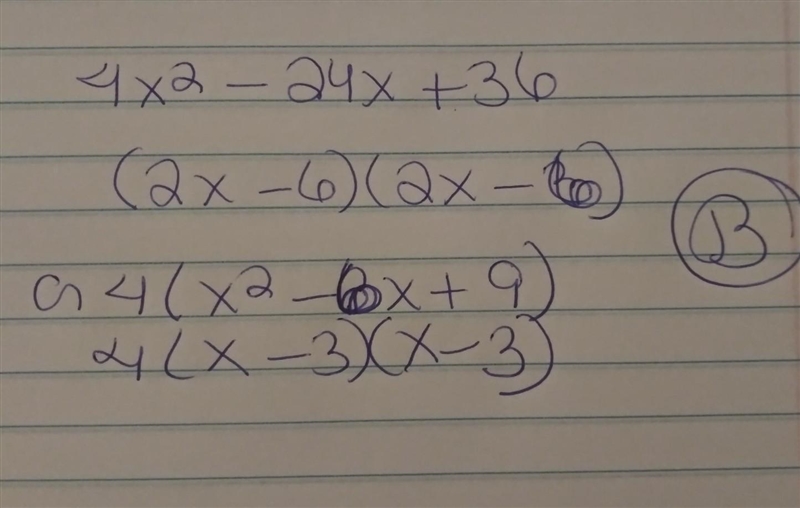 4x2 - 24x + 36
(2x - 6)(2x - 6)
B
a 4(x2 - 6x + 9)
4(x - 3)(x - 3)